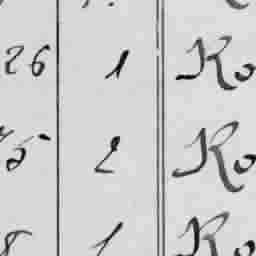 26 1 Ko
75 2 Ko
8 1 Ko